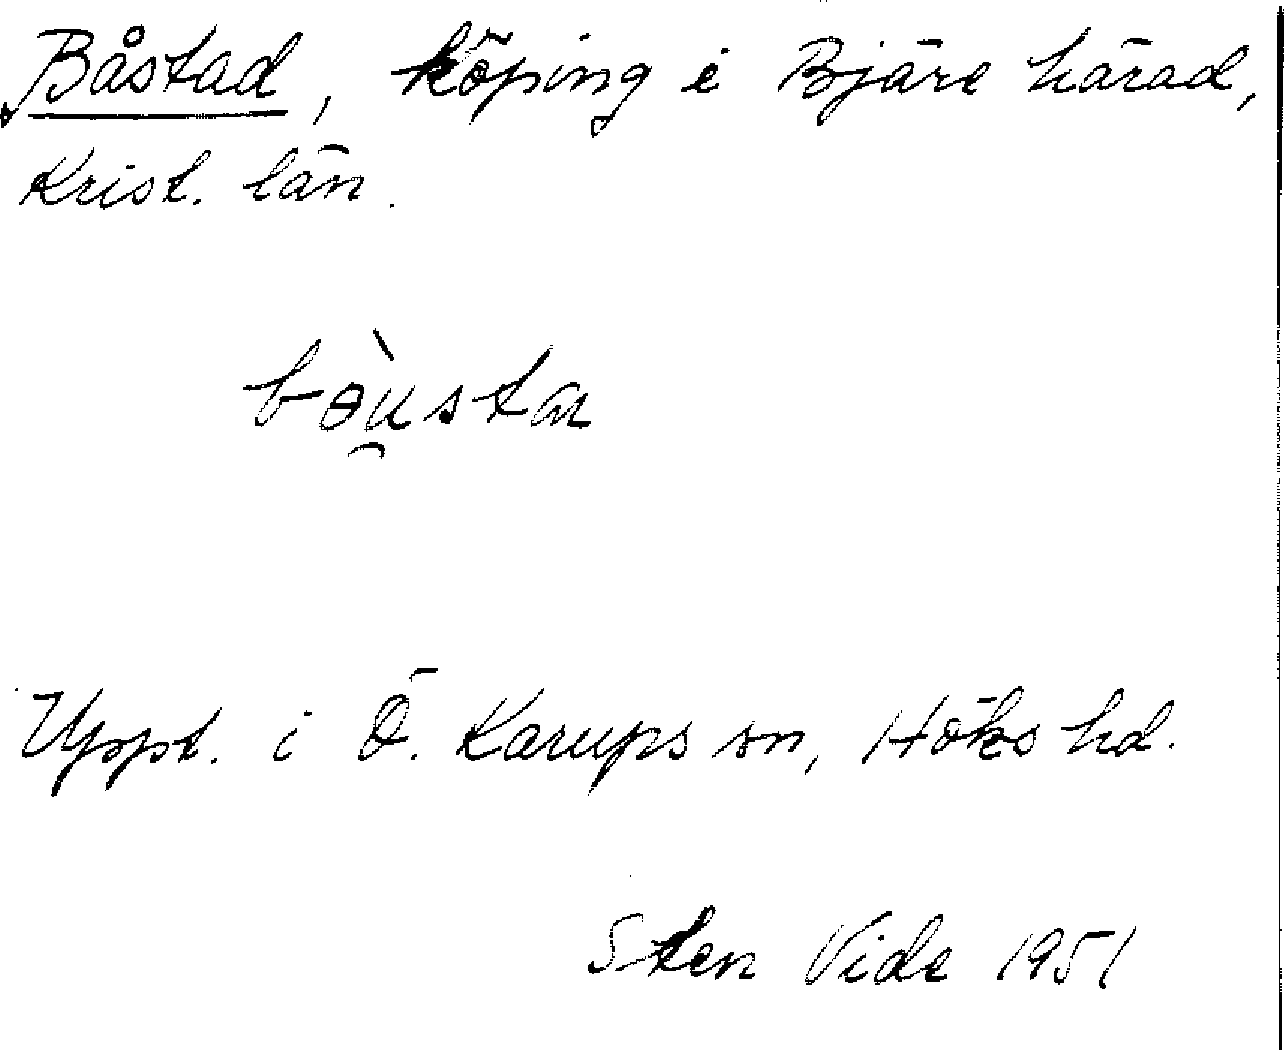 Båstad, köping i Bjäre härad,
Krist. län.
bɵ̀u̯sta
Uppt. i Ö. Karups sn, Höks hd.
Sten Vide 1951